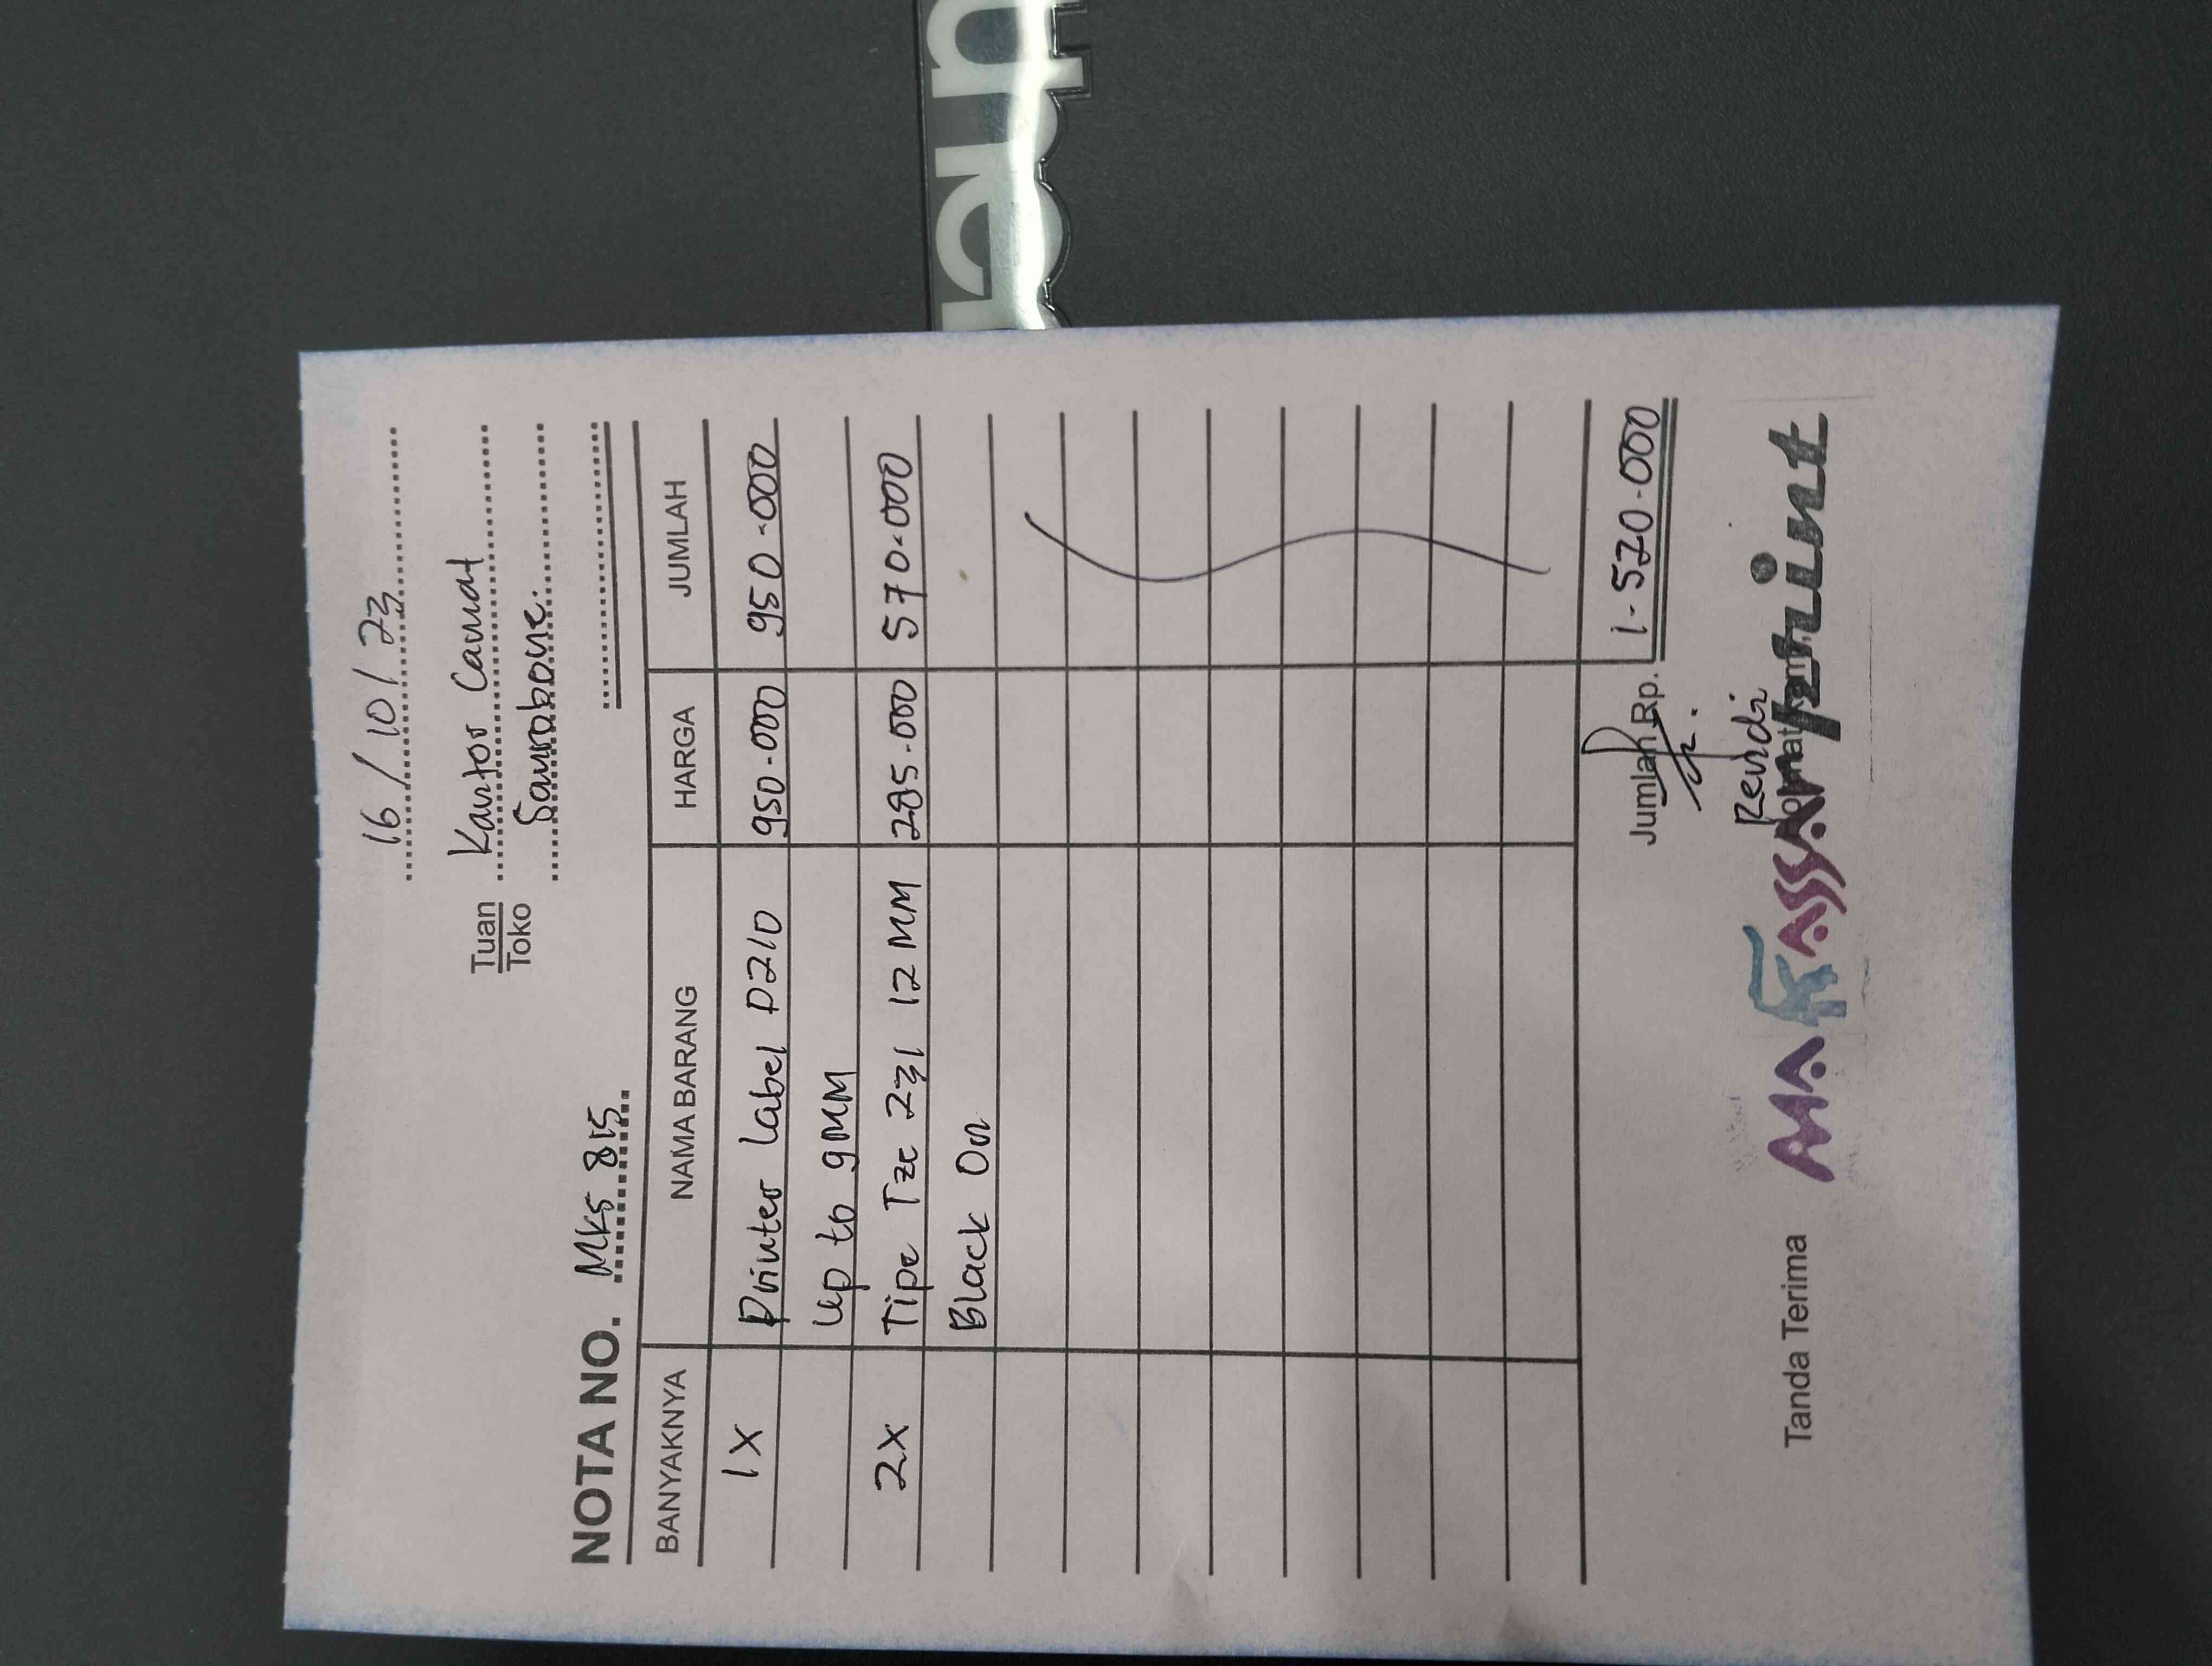 16/10/23
Tuan Kantor Camat
Toko Sanrobone.
NOTA NO. Mks 815
BANYAKNYA NAMA BARANG HARGA JUMLAH
1X Printer Label D210 950-000 950-000
Up to 9MM
2X Tipe Tze 231 12 MM 285-000 570-000
Black On
Jumlah Rp. 1-520-000
Rendi
Tanda Terima
MAKASSAR print